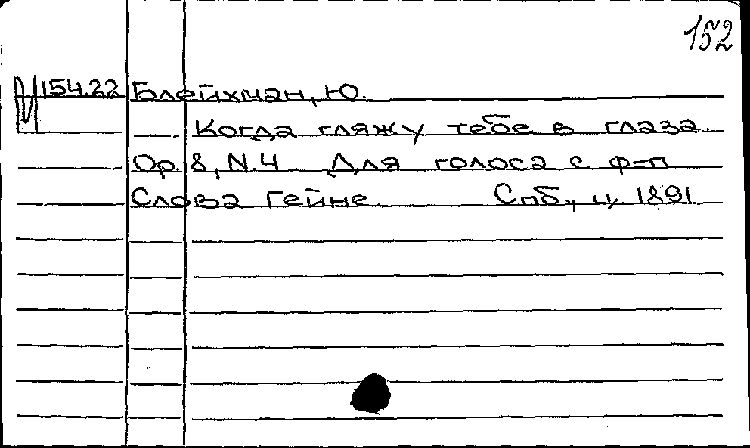 152
154.22 Блейхман, Ю.
Когда гляжу тебе в глаза
Op. 8, N. 4 Для голоса с ф-п
Слова Гейне Спб., ц. 1891